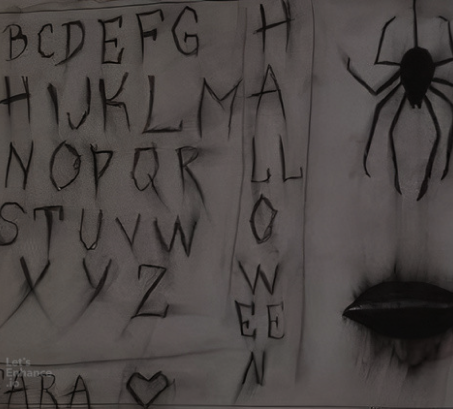 BCDEFG
HIJKLM
NOPQR
STUVW
XYZ
ARA
H
A
LL
O
W
EE
N
Let's
Enhance
.io